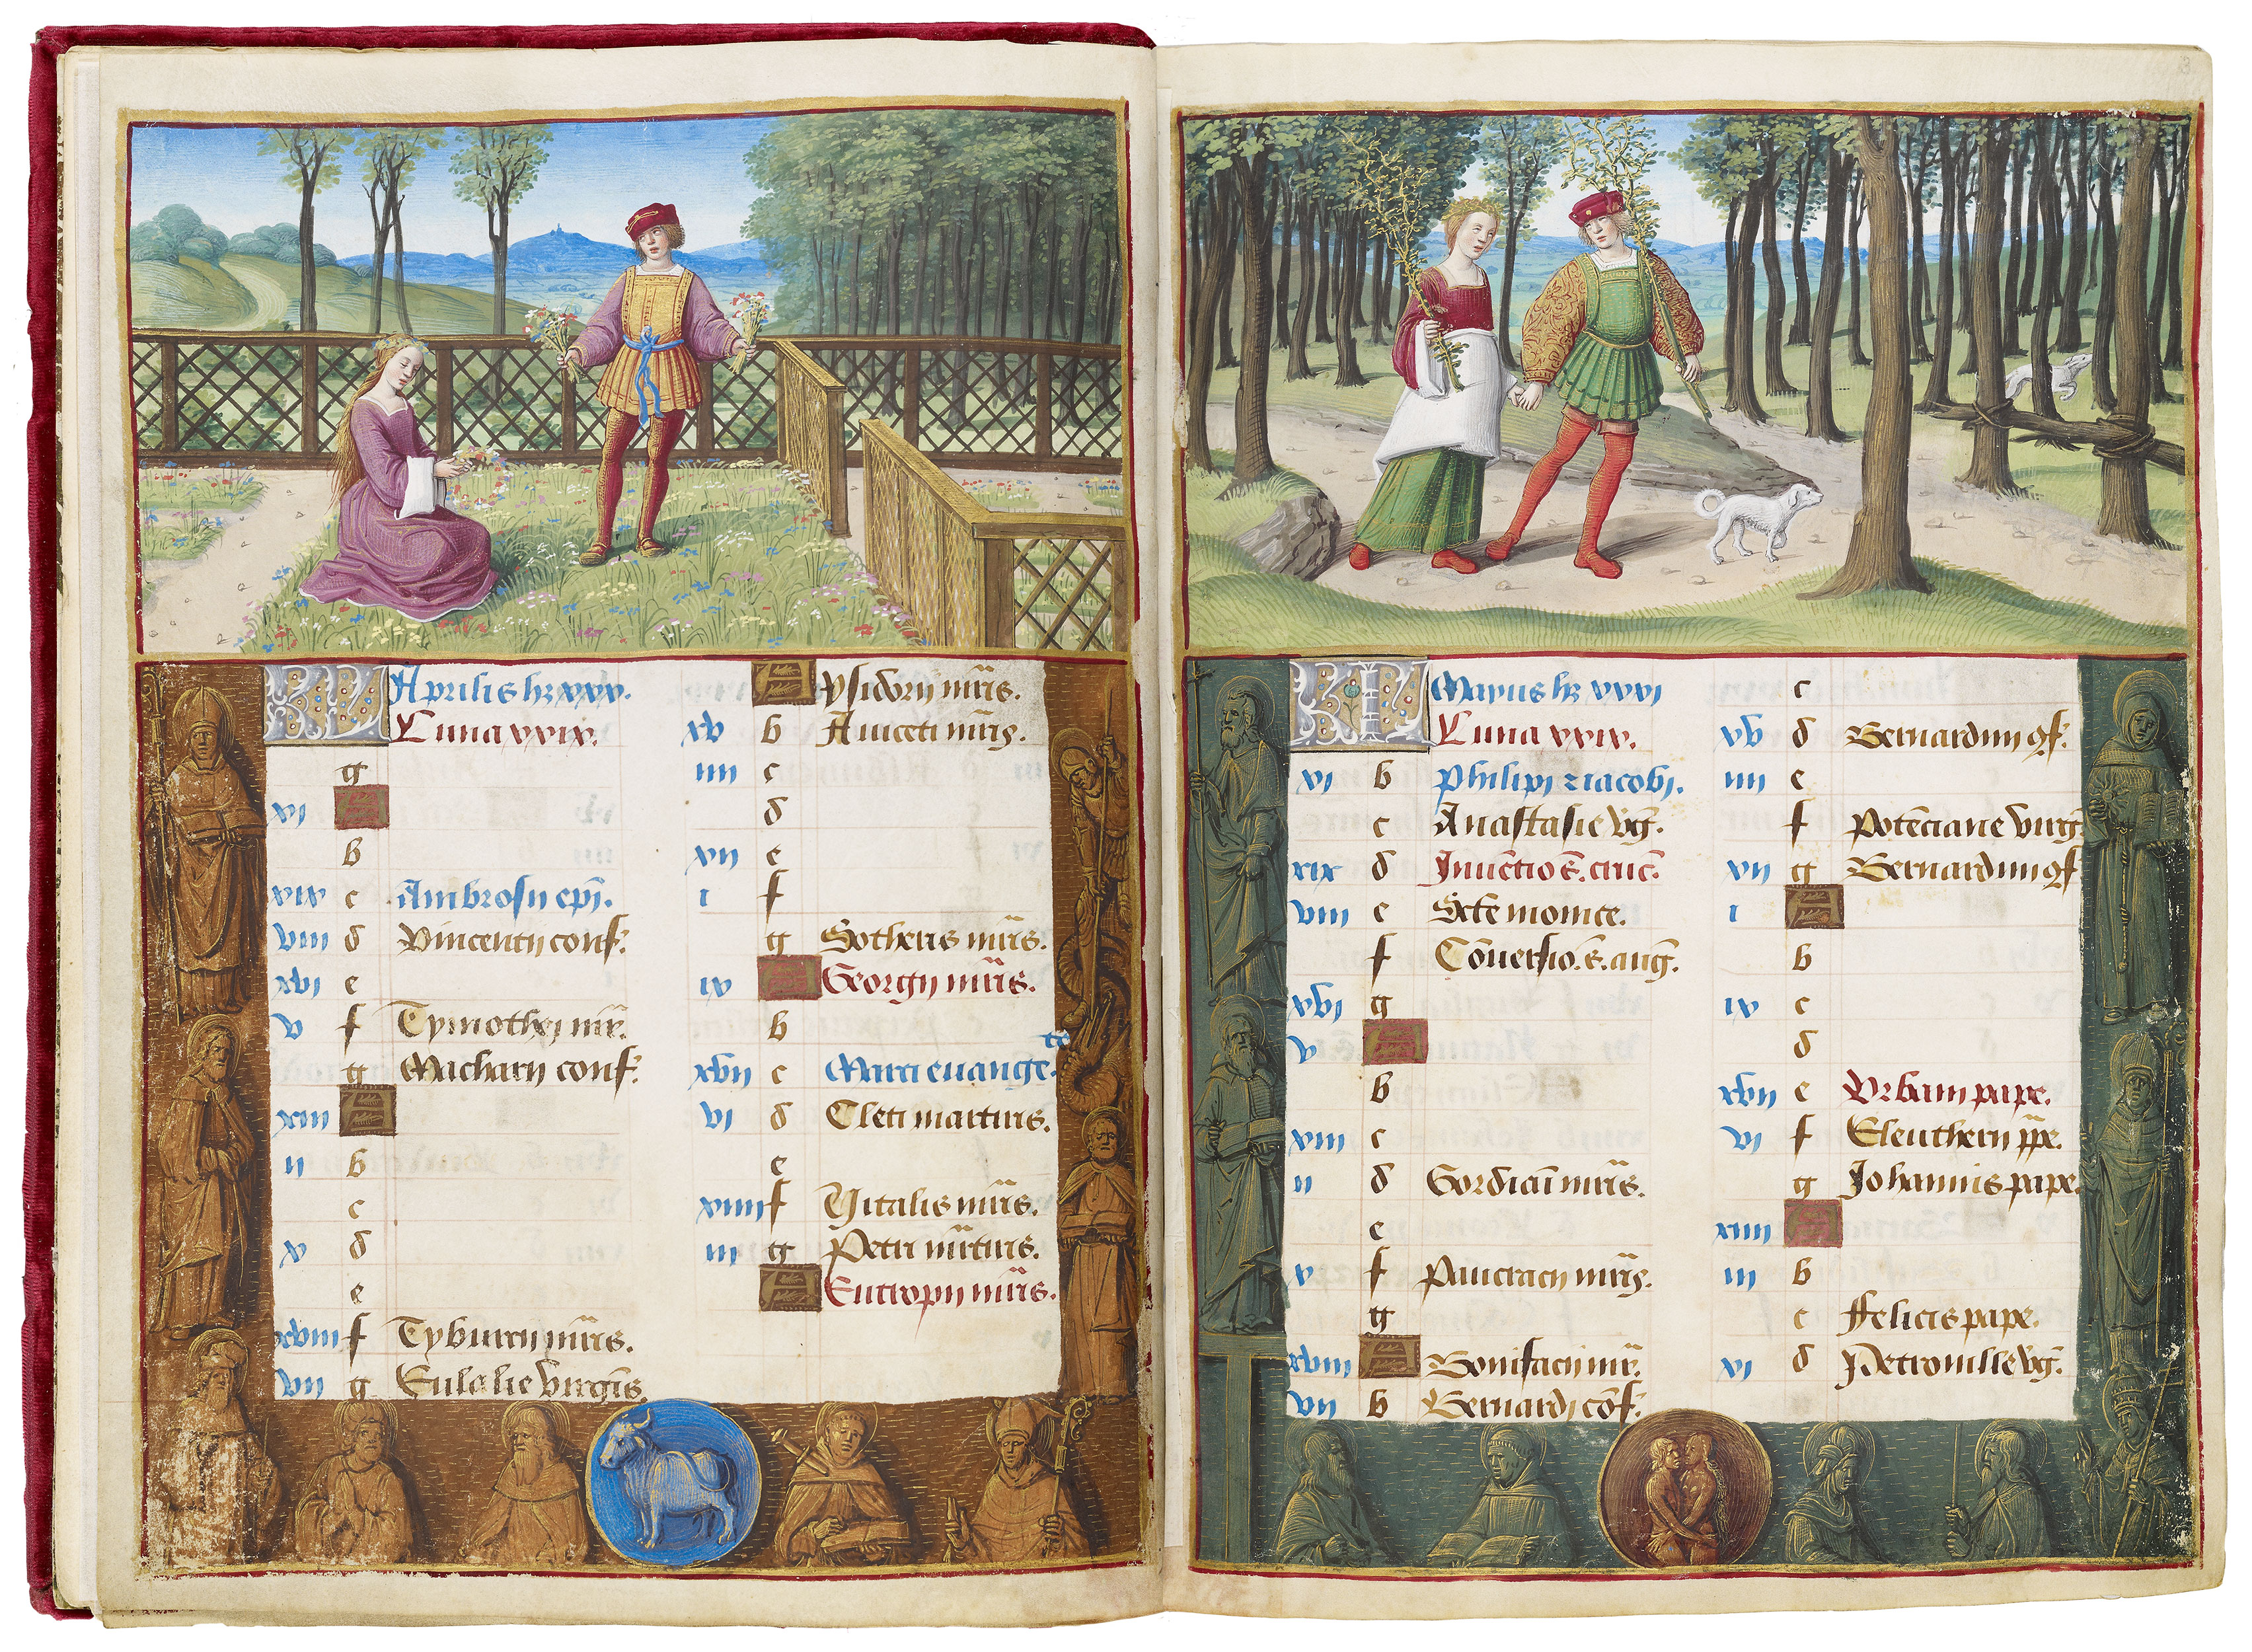 KL Aprilis hz xxx.
Luna xxix.
g
xi A
b
xix c Ambrosii epi.
viii d Vincentii conf.
xvi e
v f Tymothei mr.
g Macharii conf.
xiii A
ii b
c
x d
e
xviii f Tyburcii mris.
vii g Eulalie virginis
A ysidorii mris.
xv b Aniceti mris.
iiii c
d
xii e
i f
g Sotheris mris.
ix A Georgii mris.
b
xvii c Marci evange.te
vi d Cleti martiris.
e
xiiii f Vitalis mris.
iii g Petri mrtiris.
A Eutropii mris.
3
KL Mayus hz xxxi
Luna xxix.
xi b Philipi z iacobi.
c Anastasie vg.
xix d Inventio s. cruc.
viii e Scte monice.
f Conversio. s. aug.
xvi g
v A
b
xiii c
ii d Gordiani mris.
e
x f Pancracii mris.
g
xviii A Bonifacii mr.
vii b Bernardi cof.
c
xv d Bernardini cf.
iiii e
f Potenciane virg
xii g Bernardini cf
i A
b
ix c
d
xvii e Urbani pape.
vi f Eleutherii ppe.
g Johannis pape.
xiiii A
iii b
c Felicis pape.
xi d Petronille vg.